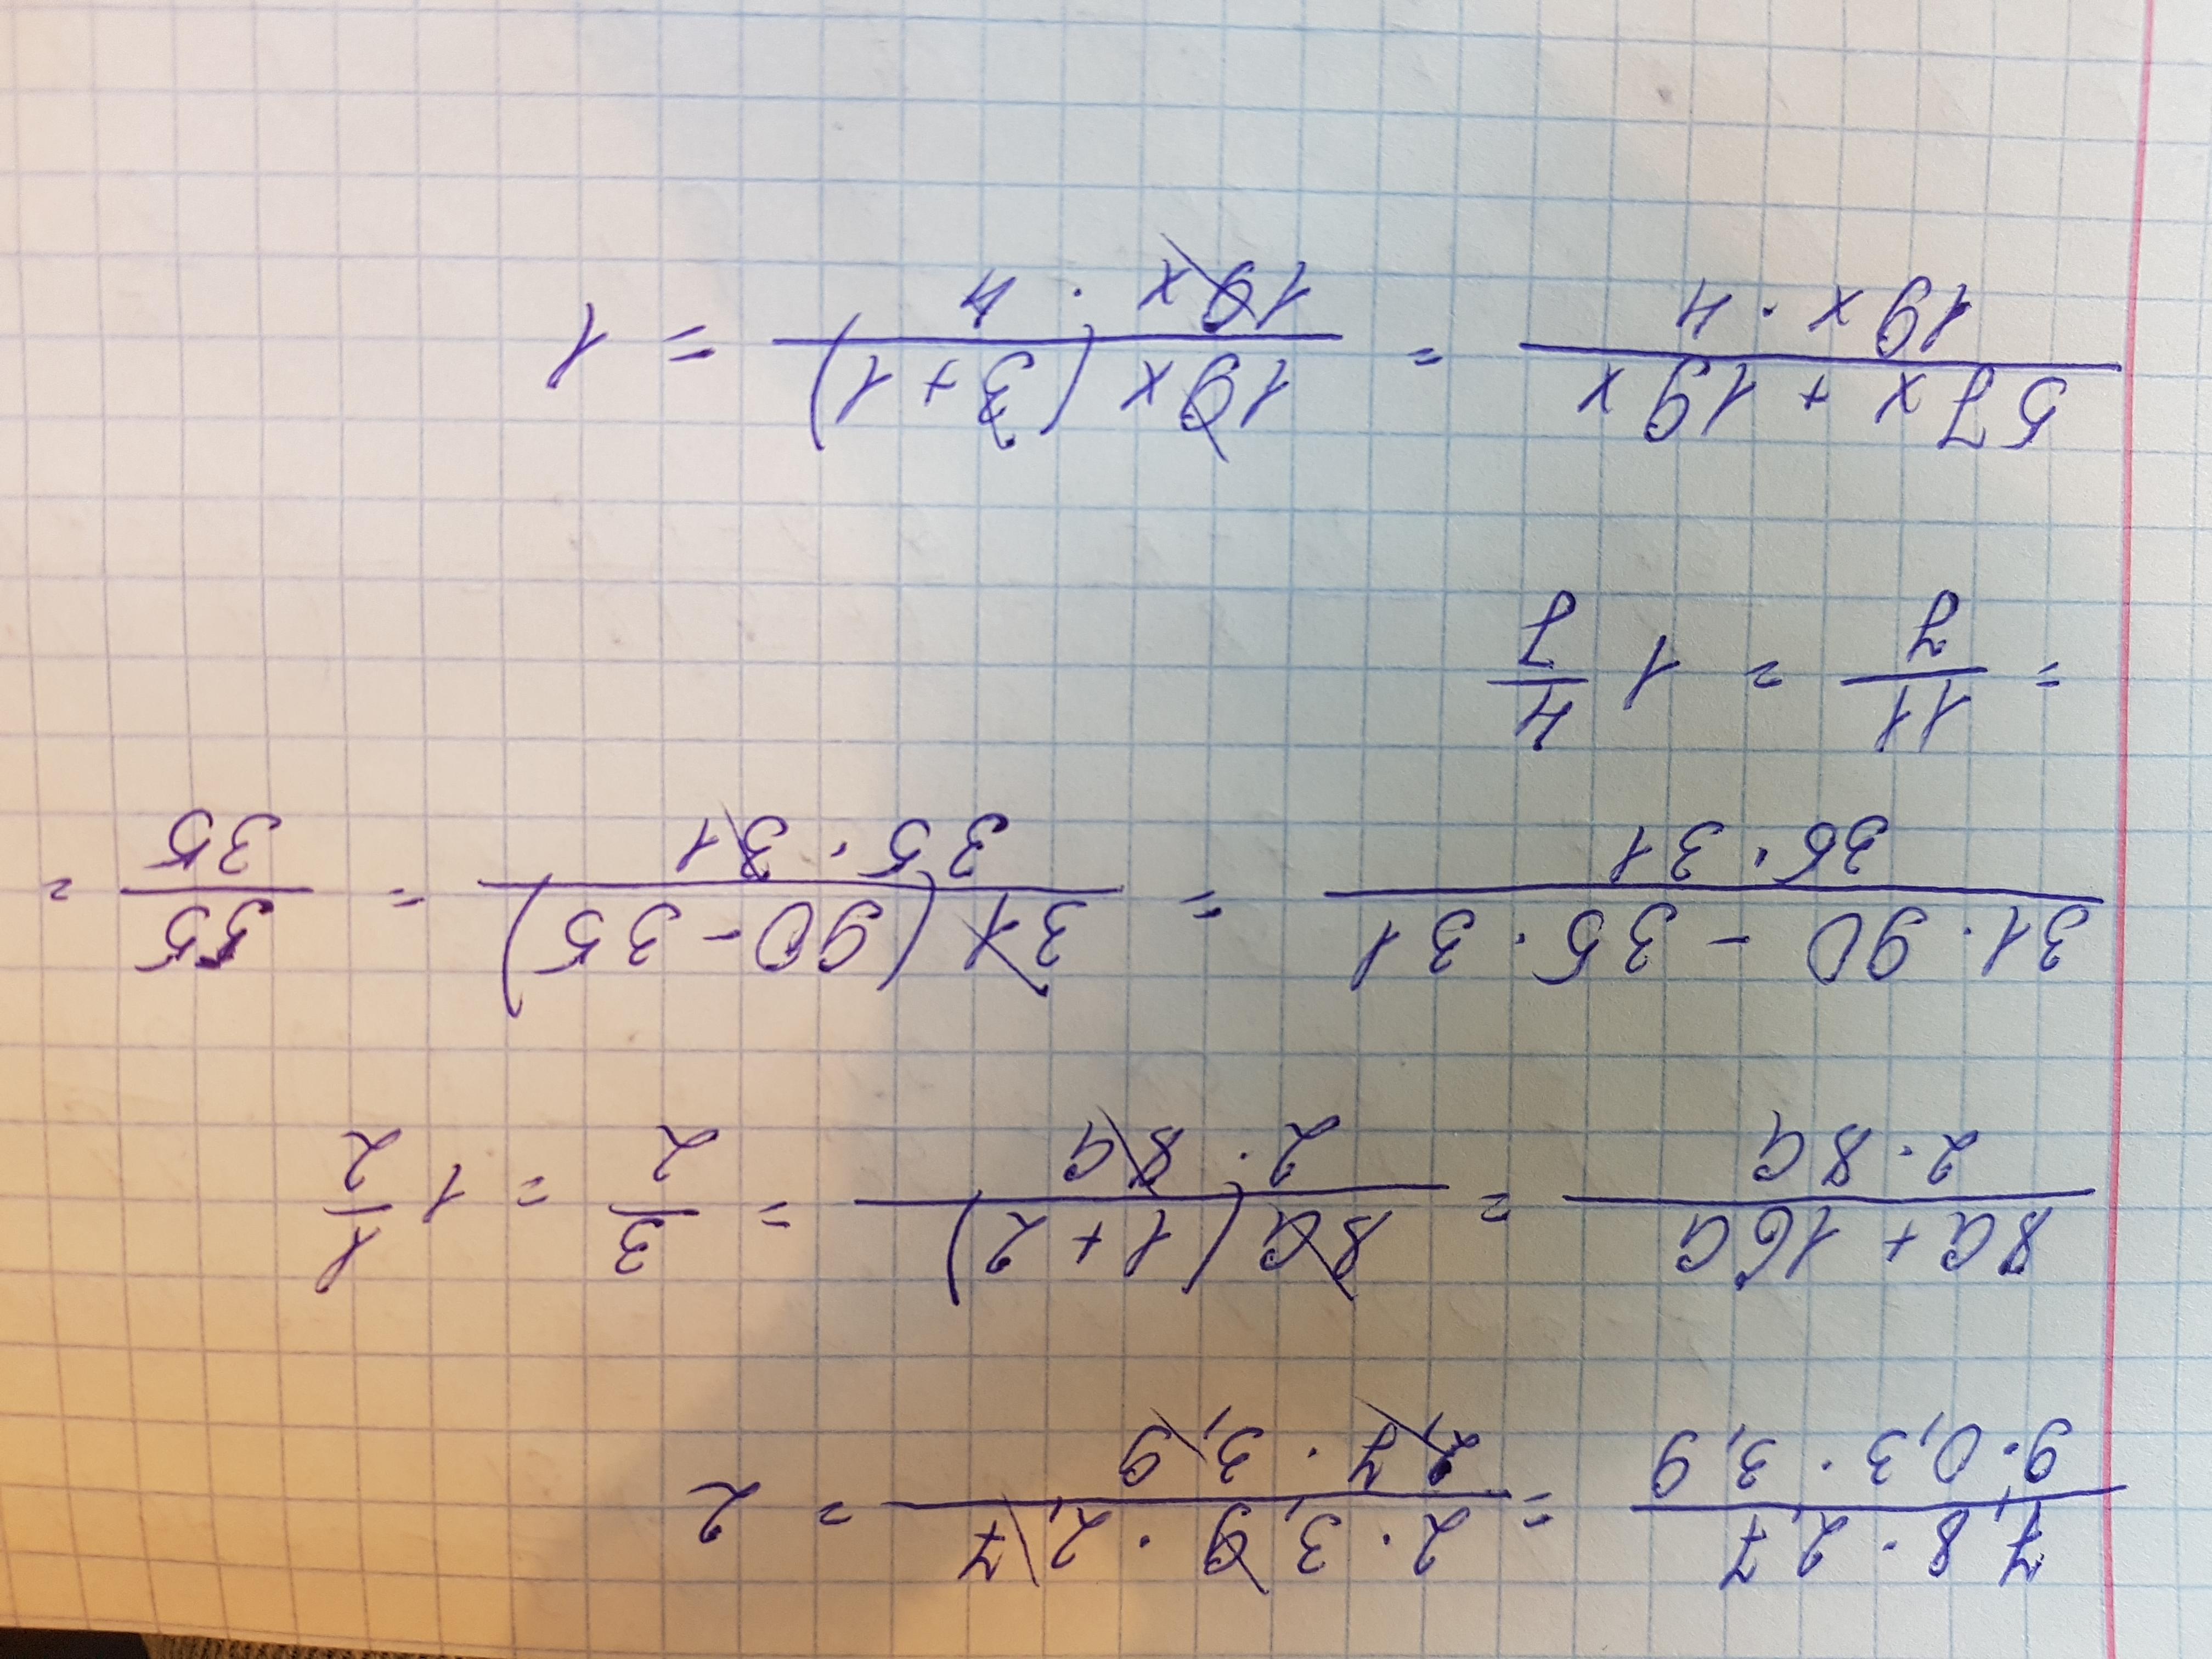 7,8 · 2,7 / 9 · 0,3 · 3,9 = 2 · 3,9 · 2,7 / 2,7 · 3,9 = 2
8a + 16a / 2 · 8a = 8a (1 + 2) / 2 · 8a = 3/2 = 1 1/2
31 · 90 - 35 · 31 / 35 · 31 = 31 (90 - 35) / 35 · 31 = 55/35 =
= 11/7 = 1 4/7
57x + 19x / 19x · 4 = 19x (3 + 1) / 19x · 4 = 1